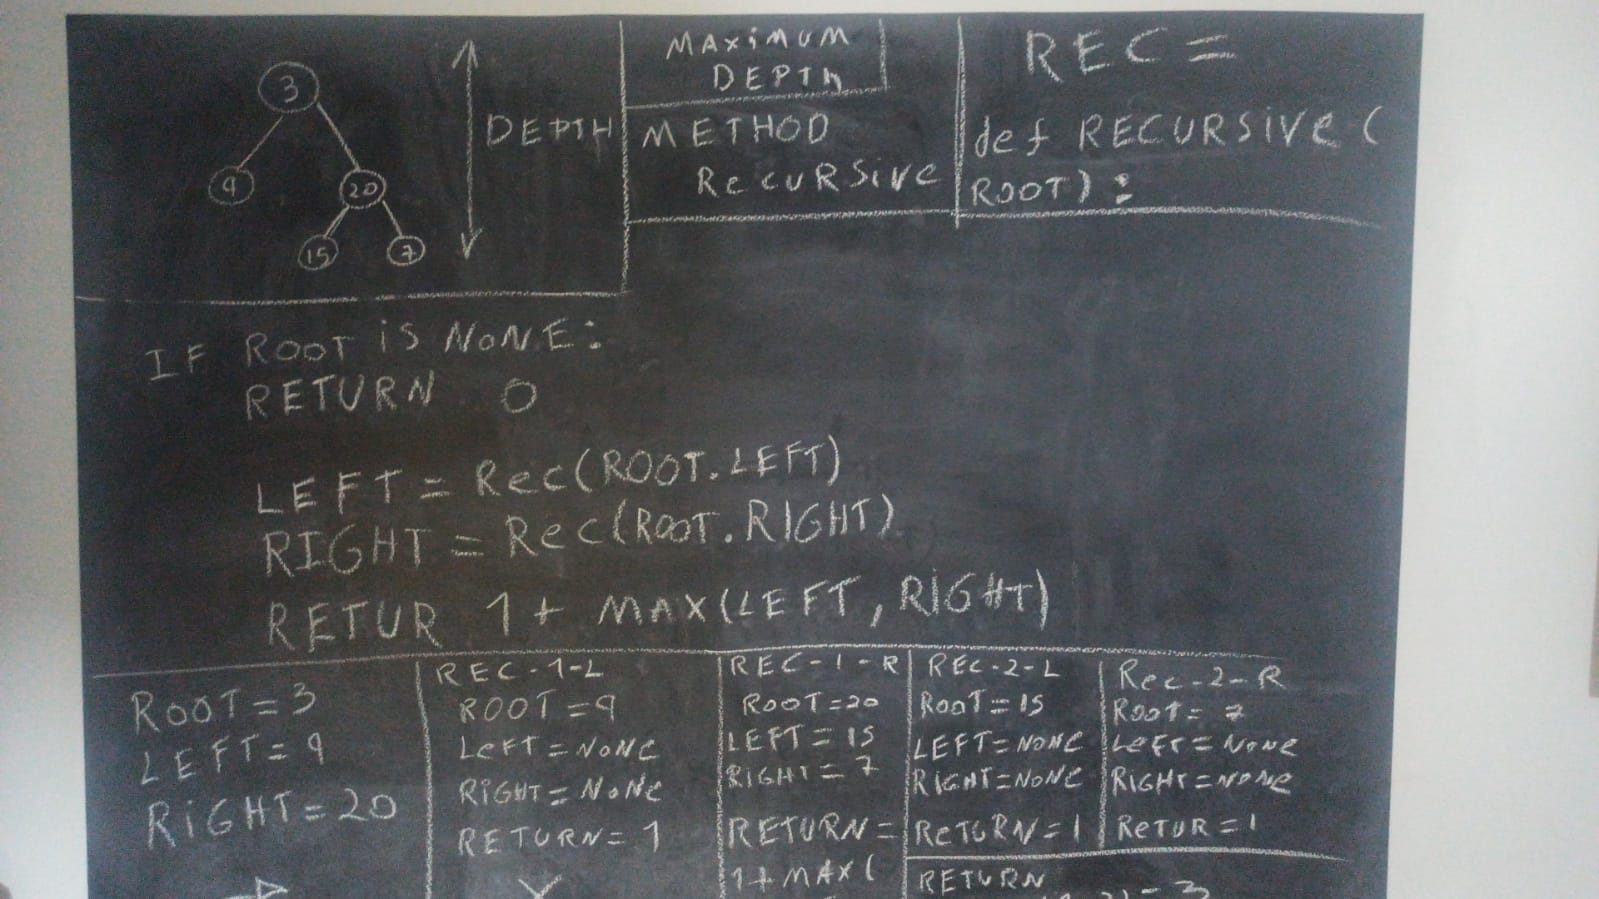 3
9
20
15
7
DEPTH
MAXIMUM
DEPTh
METHOD
RecuRSive
REC=
def RECURSive(
ROOT):
IF ROOT iS NONE:
RETURN 0
LEFT = Rec(ROOT.LEFT)
RIGHT = Rec(ROOT.RIGHT)
RETUR 1 + MAX(LEFT, RiGHT)
ROOT=3
LEFT=9
RiGHT=20
REC-1-L
ROOT=9
LeFT=NONE
RiGHT=NoNe
RETURN=1
REC-1-R
ROOT=20
LEFT=15
RiGHT=7
RETURN=
1+MAX(
REC-2-L
ROOT=15
LEFT=NONE
RIGHT=NONE
ReTURN=1
Rec-2-R
ROOT=7
LeFT=NONE
RIGHT=NONE
ReTUR=1
RETURN
=3